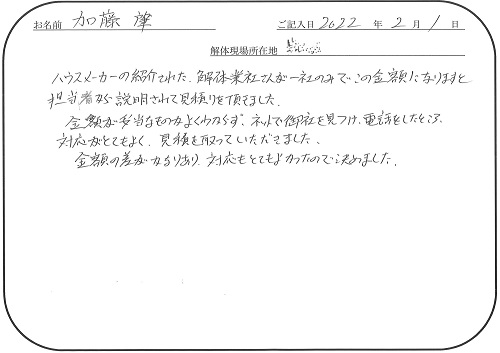 お名前 加藤 肇 ご記入日 2022 年 2 月 1 日
解体現場所在地
ハウスメーカーの紹介された、解体業社さんが一社のみでこの金額になりますと
担当者から説明されて見積りを頂きました。
金額が妥当なものかよくわからず、ネットで御社を見つけ、電話をしたところ
対応がとてもよく、見積を取っていただきました。
金額の差がかなりあり、対応もとてもよかったので決めました。